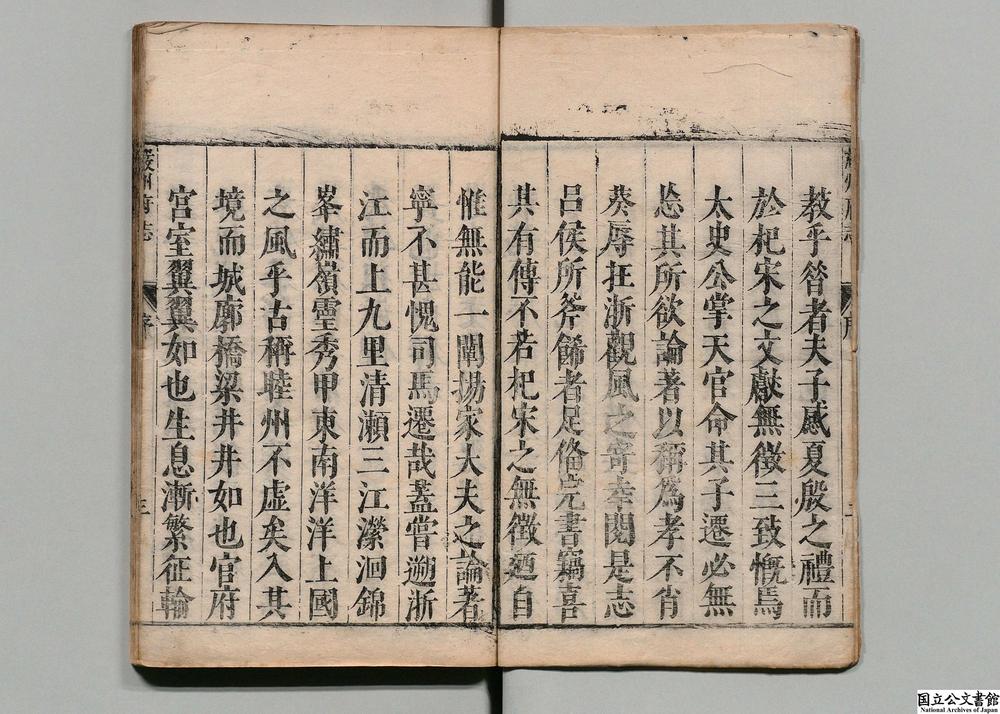 教乎昝者夫子感夏殷之禮而
於杞宋之文獻無徵三致慨焉
太史公掌天官命其子遷必無
忘其所欲論著以稱爲孝不肖
葵辱在浙觀風之寄幸閱是志
呂侯所斧餙者足俻完書竊喜
其有傳不若杞宋之無徵廼自
惟無能一闡揚家大夫之論著
寧不甚愧司馬遷哉蓋嘗遡浙
江而上九里清瀨三江瀠洄錦
峯繡嶺靈秀甲東南洋洋上國
之風乎古稱睦州不虛矣入其
境而城廓橋梁井井如也官府
宮室翼翼如也生息漸繁征輪
嚴州府志
序
三
国立公文書館
National Archives of Japan